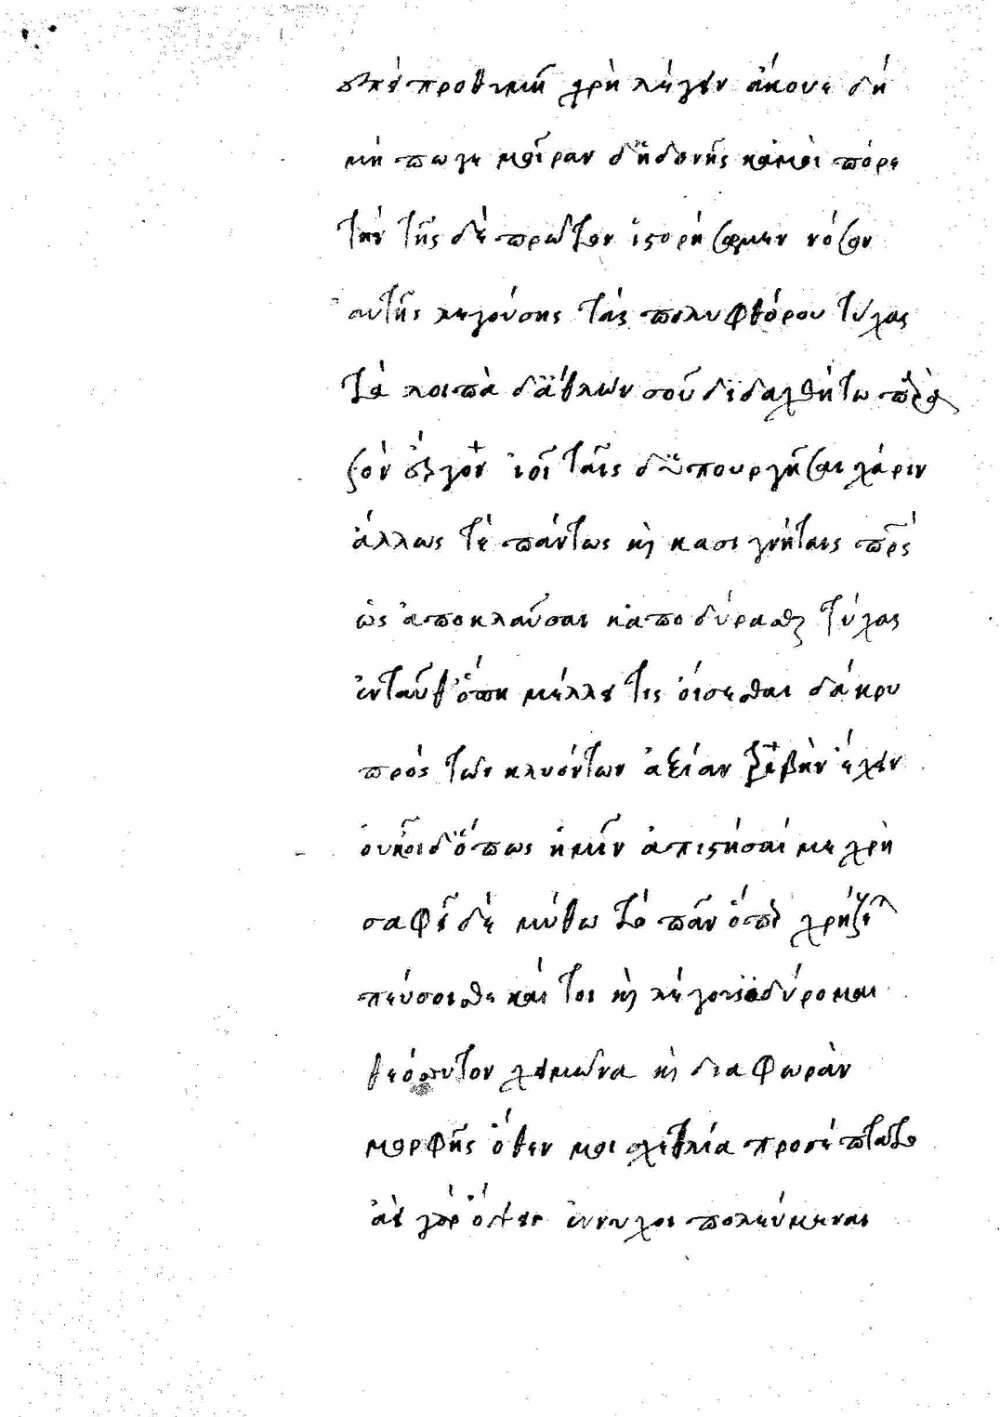 εἴπερ προθυμῆ χρὴ λέγειν ἄκουε δή
μή πω γε μοῖραν δ' ἡδονῆς κἀμοὶ πόρε
τὴν τῆς δὲ πρῶτον ἱστορήσωμεν νόσον
αὐτῆς λεγούσης τὰς πολυφθόρου τύχας
τὰ λοιπὰ δ' ἄθλων σοῦ διδαχθήτω πάρα
σὸν ἔργον ἰοῖ ταῖς δ' ὑπουργῆσαι χάριν
ἄλλως τὲ πάντως κὶ κασιγνήταις πρς
ὡς ἀποκλαῦσαι κἀποδύρασθαι τύχας
ἐνταῦθ' ὅπη μέλλει τις οἴσεσθαι δάκρυ
πρὸς τῶν κλυόντων ἀξίαν τριβὴν ἔχειν
οὐκ οἶδ' ὅπως ἡμῖν ἀπιστῆσαί με χρὴ
σαφεῖ δὲ μύθω τὸ πᾶν ὅπερ χρήζετε
πεύσοισθε καί τοι κὶ λέγουσ' ὀδύρομαι
θεόσυτον χειμῶνα κὶ διαφωρὰν
μορφῆς ὅθεν μοι σχετλία προσέπτατο
ἀεὶ γὰρ ὄψεις ἔννυχοι πολεύμεναι